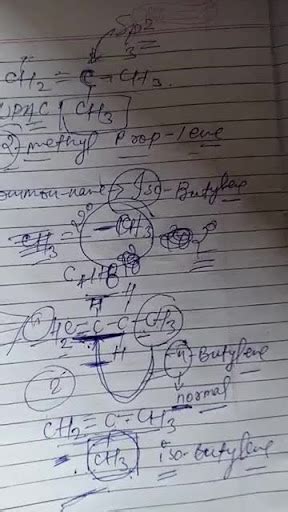 Sp2
3
CH2 = C - CH3.
IUPAC CH3
2 methyl Prop-1ene
common name Iso-Butylene
CH3 = - CH3
C4H8
H H
H2C = C - C - CH3
H
n-Butylene
2 normal
CH2 = C - CH3
CH3 iso-butylene